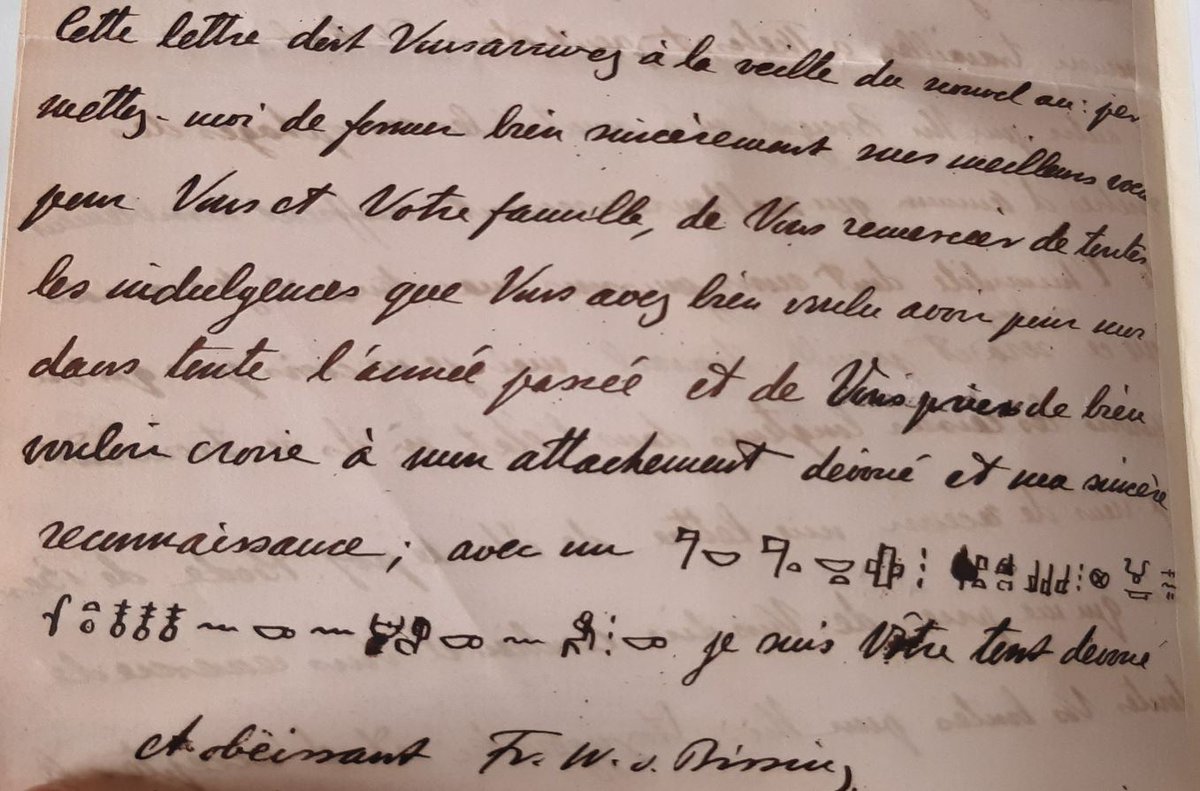 Cette lettre doit Vous arrivez à la veille du nouvel an: per
mettez-moi de former bien sincèrement mes meilleurs vœu
pour Vous et Votre famille, de Vous remercier de toutes
les indulgences que Vous avez bien voulu avoir pour moi
dans toute l'année passée et de Vous prier de bien
vouloir croire à mon attachement dévoué et ma sincère
reconnaissance; avec un
je suis Vôtre tout devoué
et obëissant Fr. W. v. Bissing